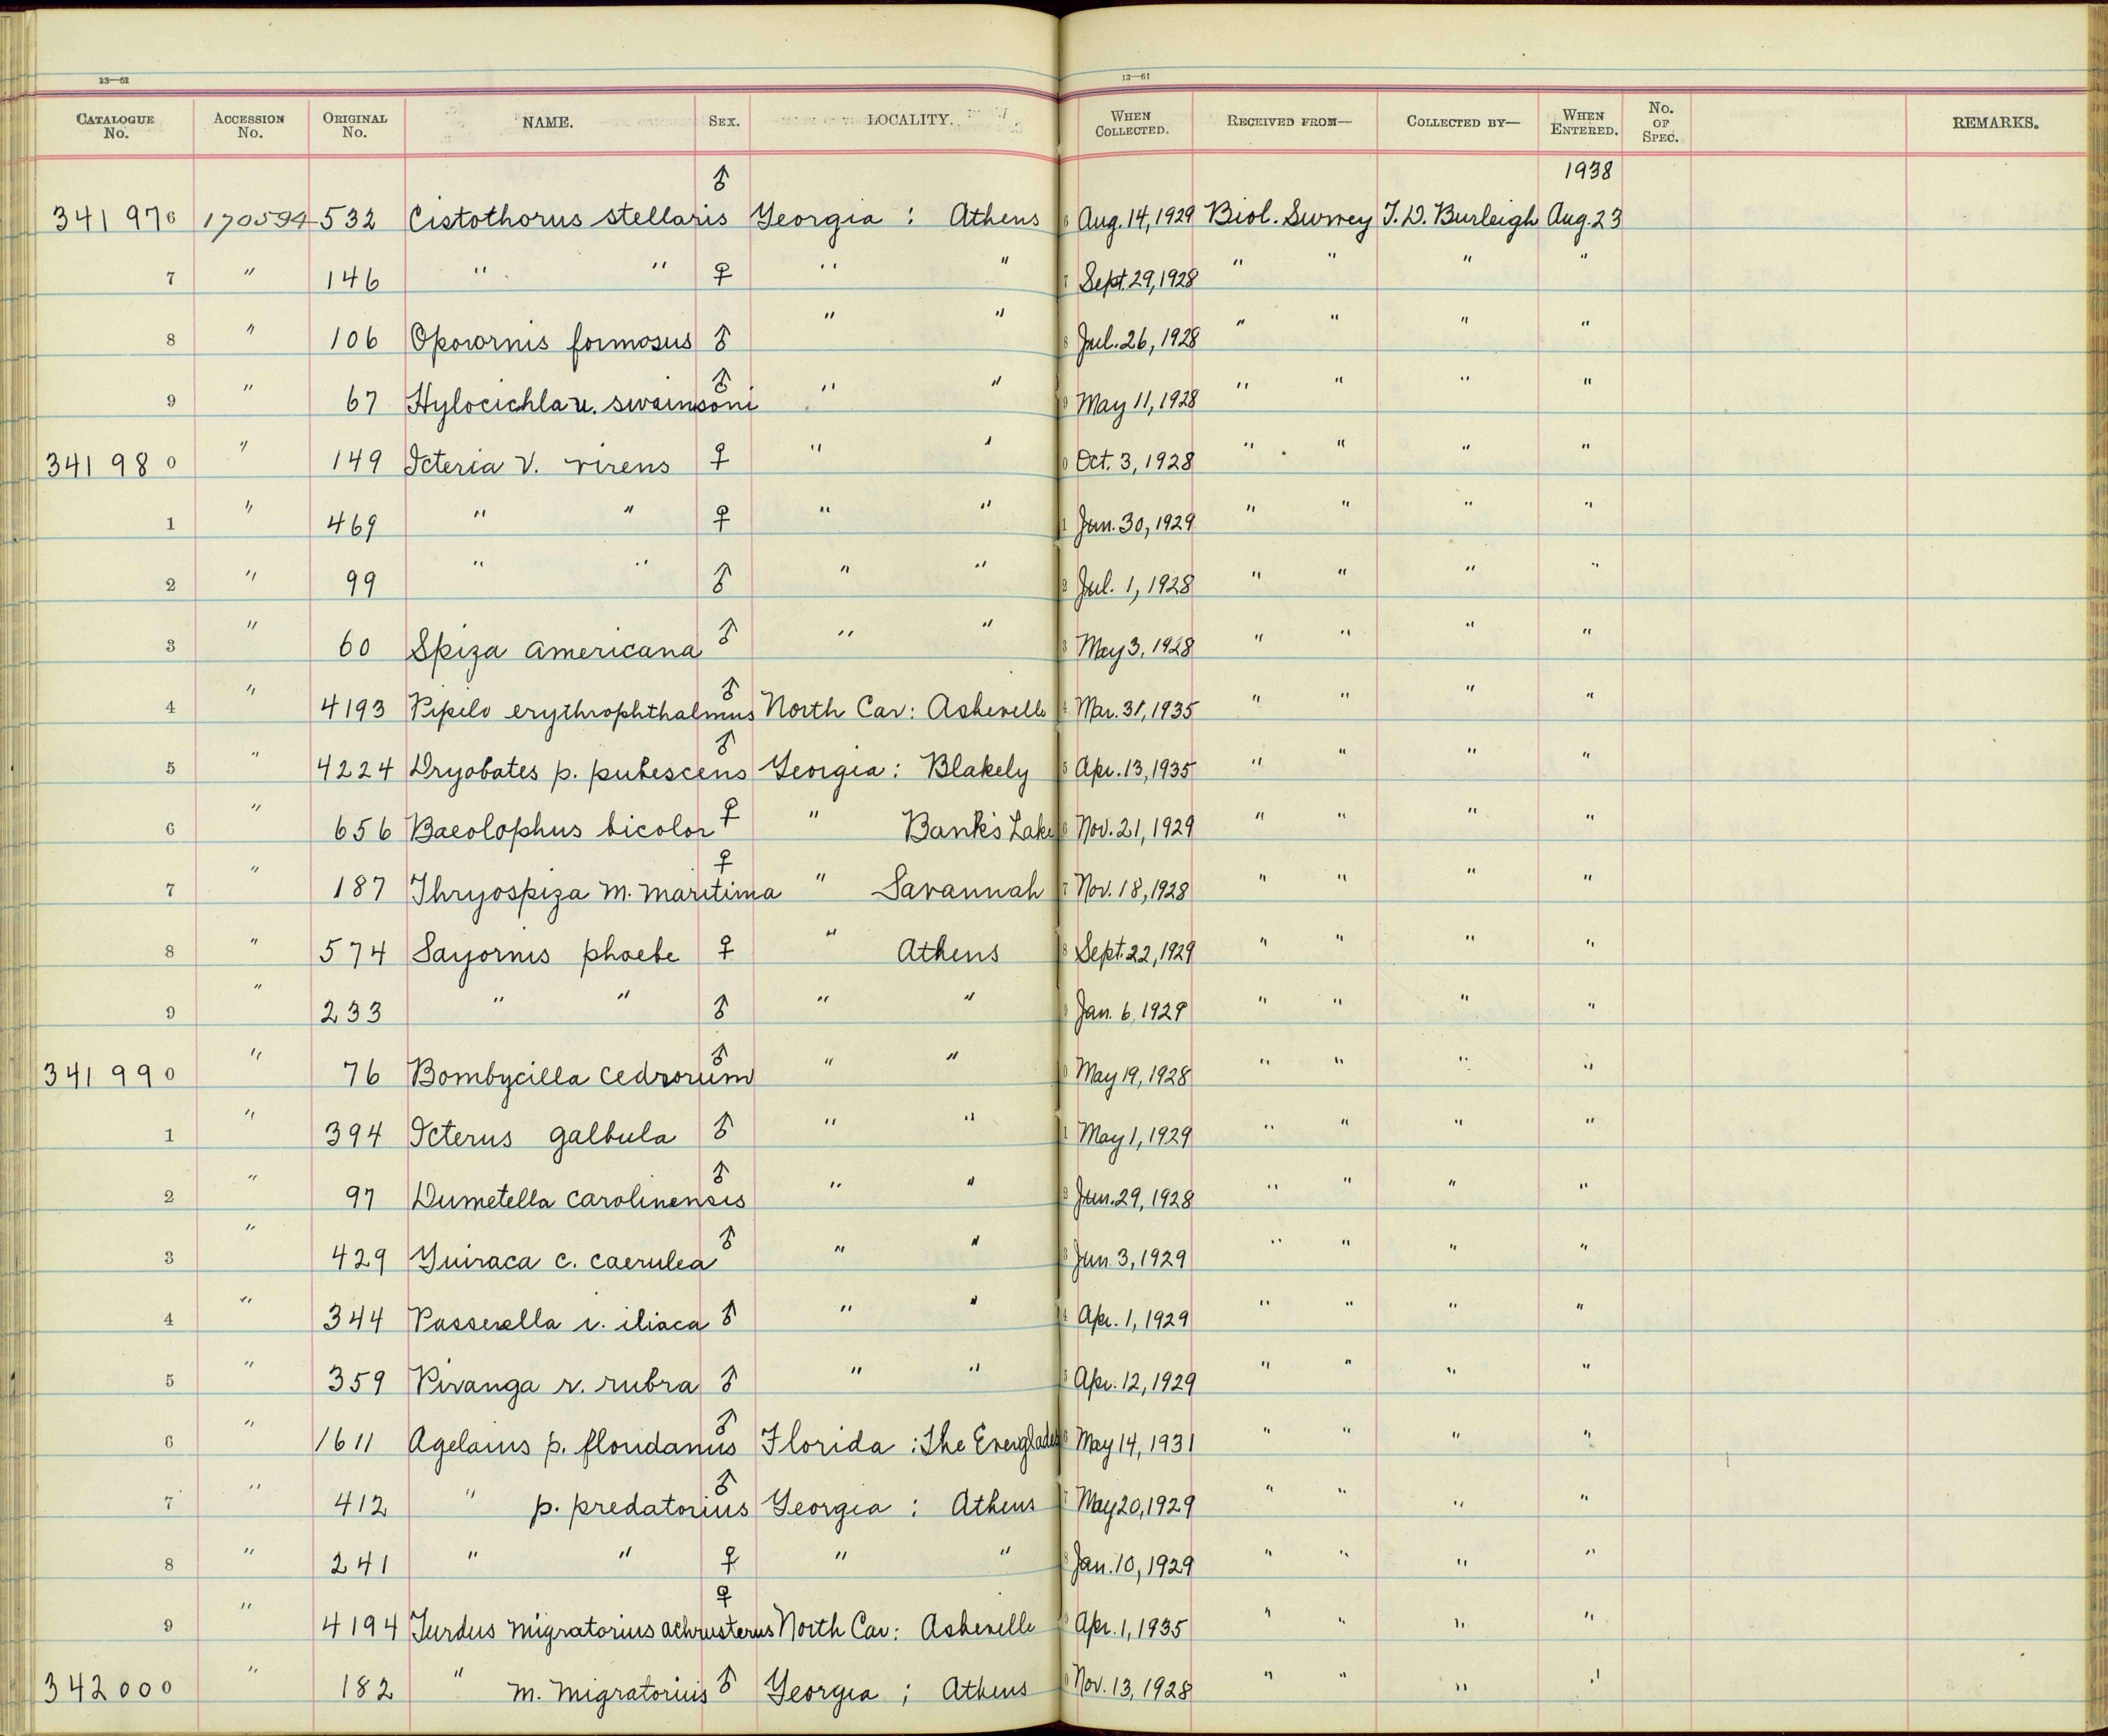 13—61 13—61
CATALOGUE No. ACCESSION No. ORIGINAL No. NAME. SEX. LOCALITY. WHEN COLLECTED. RECEIVED FROM— COLLECTED BY— WHEN ENTERED. No. OF SPEC. REMARKS.
1938
341 976 170594 532 Cistothorus stellaris ♂ Georgia : Athens 6 Aug. 14, 1929 Biol. Survey T. D. Burleigh Aug. 23
7 " 146 " " ♀ " " 7 Sept. 29, 1928 " " " "
8 " 106 Oporornis formosus ♂ " " 8 Jul. 26, 1928 " " " "
9 " 67 Hylocichla u. swainsoni ♂ " " 9 May 11, 1928 " " " "
341 980 " 149 Icteria v. virens ♀ " " 0 Oct. 3, 1928 " " " "
1 " 469 " " ♀ " " 1 Jun. 30, 1929 " " " "
2 " 99 " " ♂ " " 2 Jul. 1, 1928 " " " "
3 " 60 Spiza americana ♂ " " 3 May 3, 1928 " " " "
4 " 4193 Pipilo erythrophthalmus ♂ North Car: Asheville 4 Mar. 31, 1935 " " " "
5 " 4224 Dryobates p. pubescens ♂ Georgia : Blakely 5 Apr. 13, 1935 " " " "
6 " 656 Baeolophus bicolor ♀ " Bank's Lake 6 Nov. 21, 1929 " " " "
7 " 187 Thryospiza m. maritima ♀ " Savannah 7 Nov. 18, 1928 " " " "
8 " 574 Sayornis phoebe ♀ " Athens 8 Sept. 22, 1929 " " " "
9 " 233 " " ♂ " " 9 Jan. 6, 1929 " " " "
341 990 " 76 Bombycilla cedrorum ♂ " " 0 May 19, 1928 " " " "
1 " 394 Icterus galbula ♂ " " 1 May 1, 1929 " " " "
2 " 97 Dumetella carolinensis ♂ " " 2 Jun. 29, 1928 " " " "
3 " 429 Guiraca c. caerulea ♂ " " 3 Jun 3, 1929 " " " "
4 " 344 Passerella i. iliaca ♂ " " 4 Apr. 1, 1929 " " " "
5 " 359 Piranga r. rubra ♂ " " 5 Apr. 12, 1929 " " " "
6 " 1611 Agelaius p. floridanus ♂ Florida : The Everglades 6 May 14, 1931 " " " "
7 " 412 " p. predatorius ♂ Georgia : Athens 7 May 20, 1929 " " " "
8 " 241 " " ♀ " " 8 Jan. 10, 1929 " " " "
9 " 4194 Turdus migratorius achrusterus ♀ North Car: Asheville 9 Apr. 1, 1935 " " " "
342 000 " 182 " m. migratorius ♂ Georgia ; Athens 0 Nov. 13, 1928 " " " "